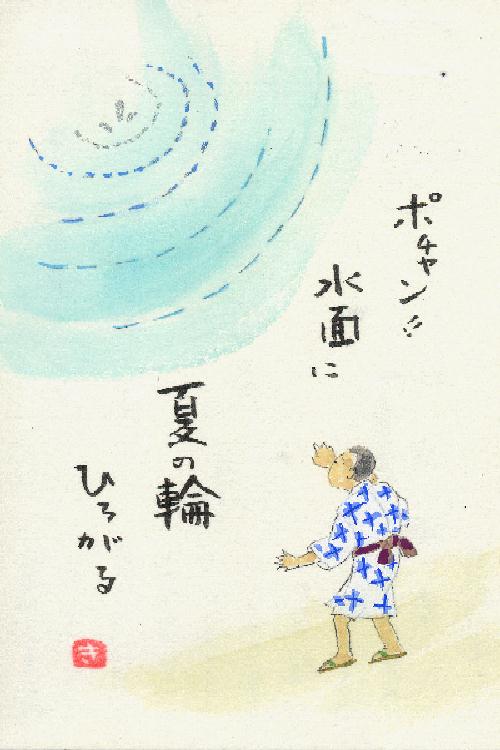 ポチャン!!
水面に
夏の輪
ひろがる
き